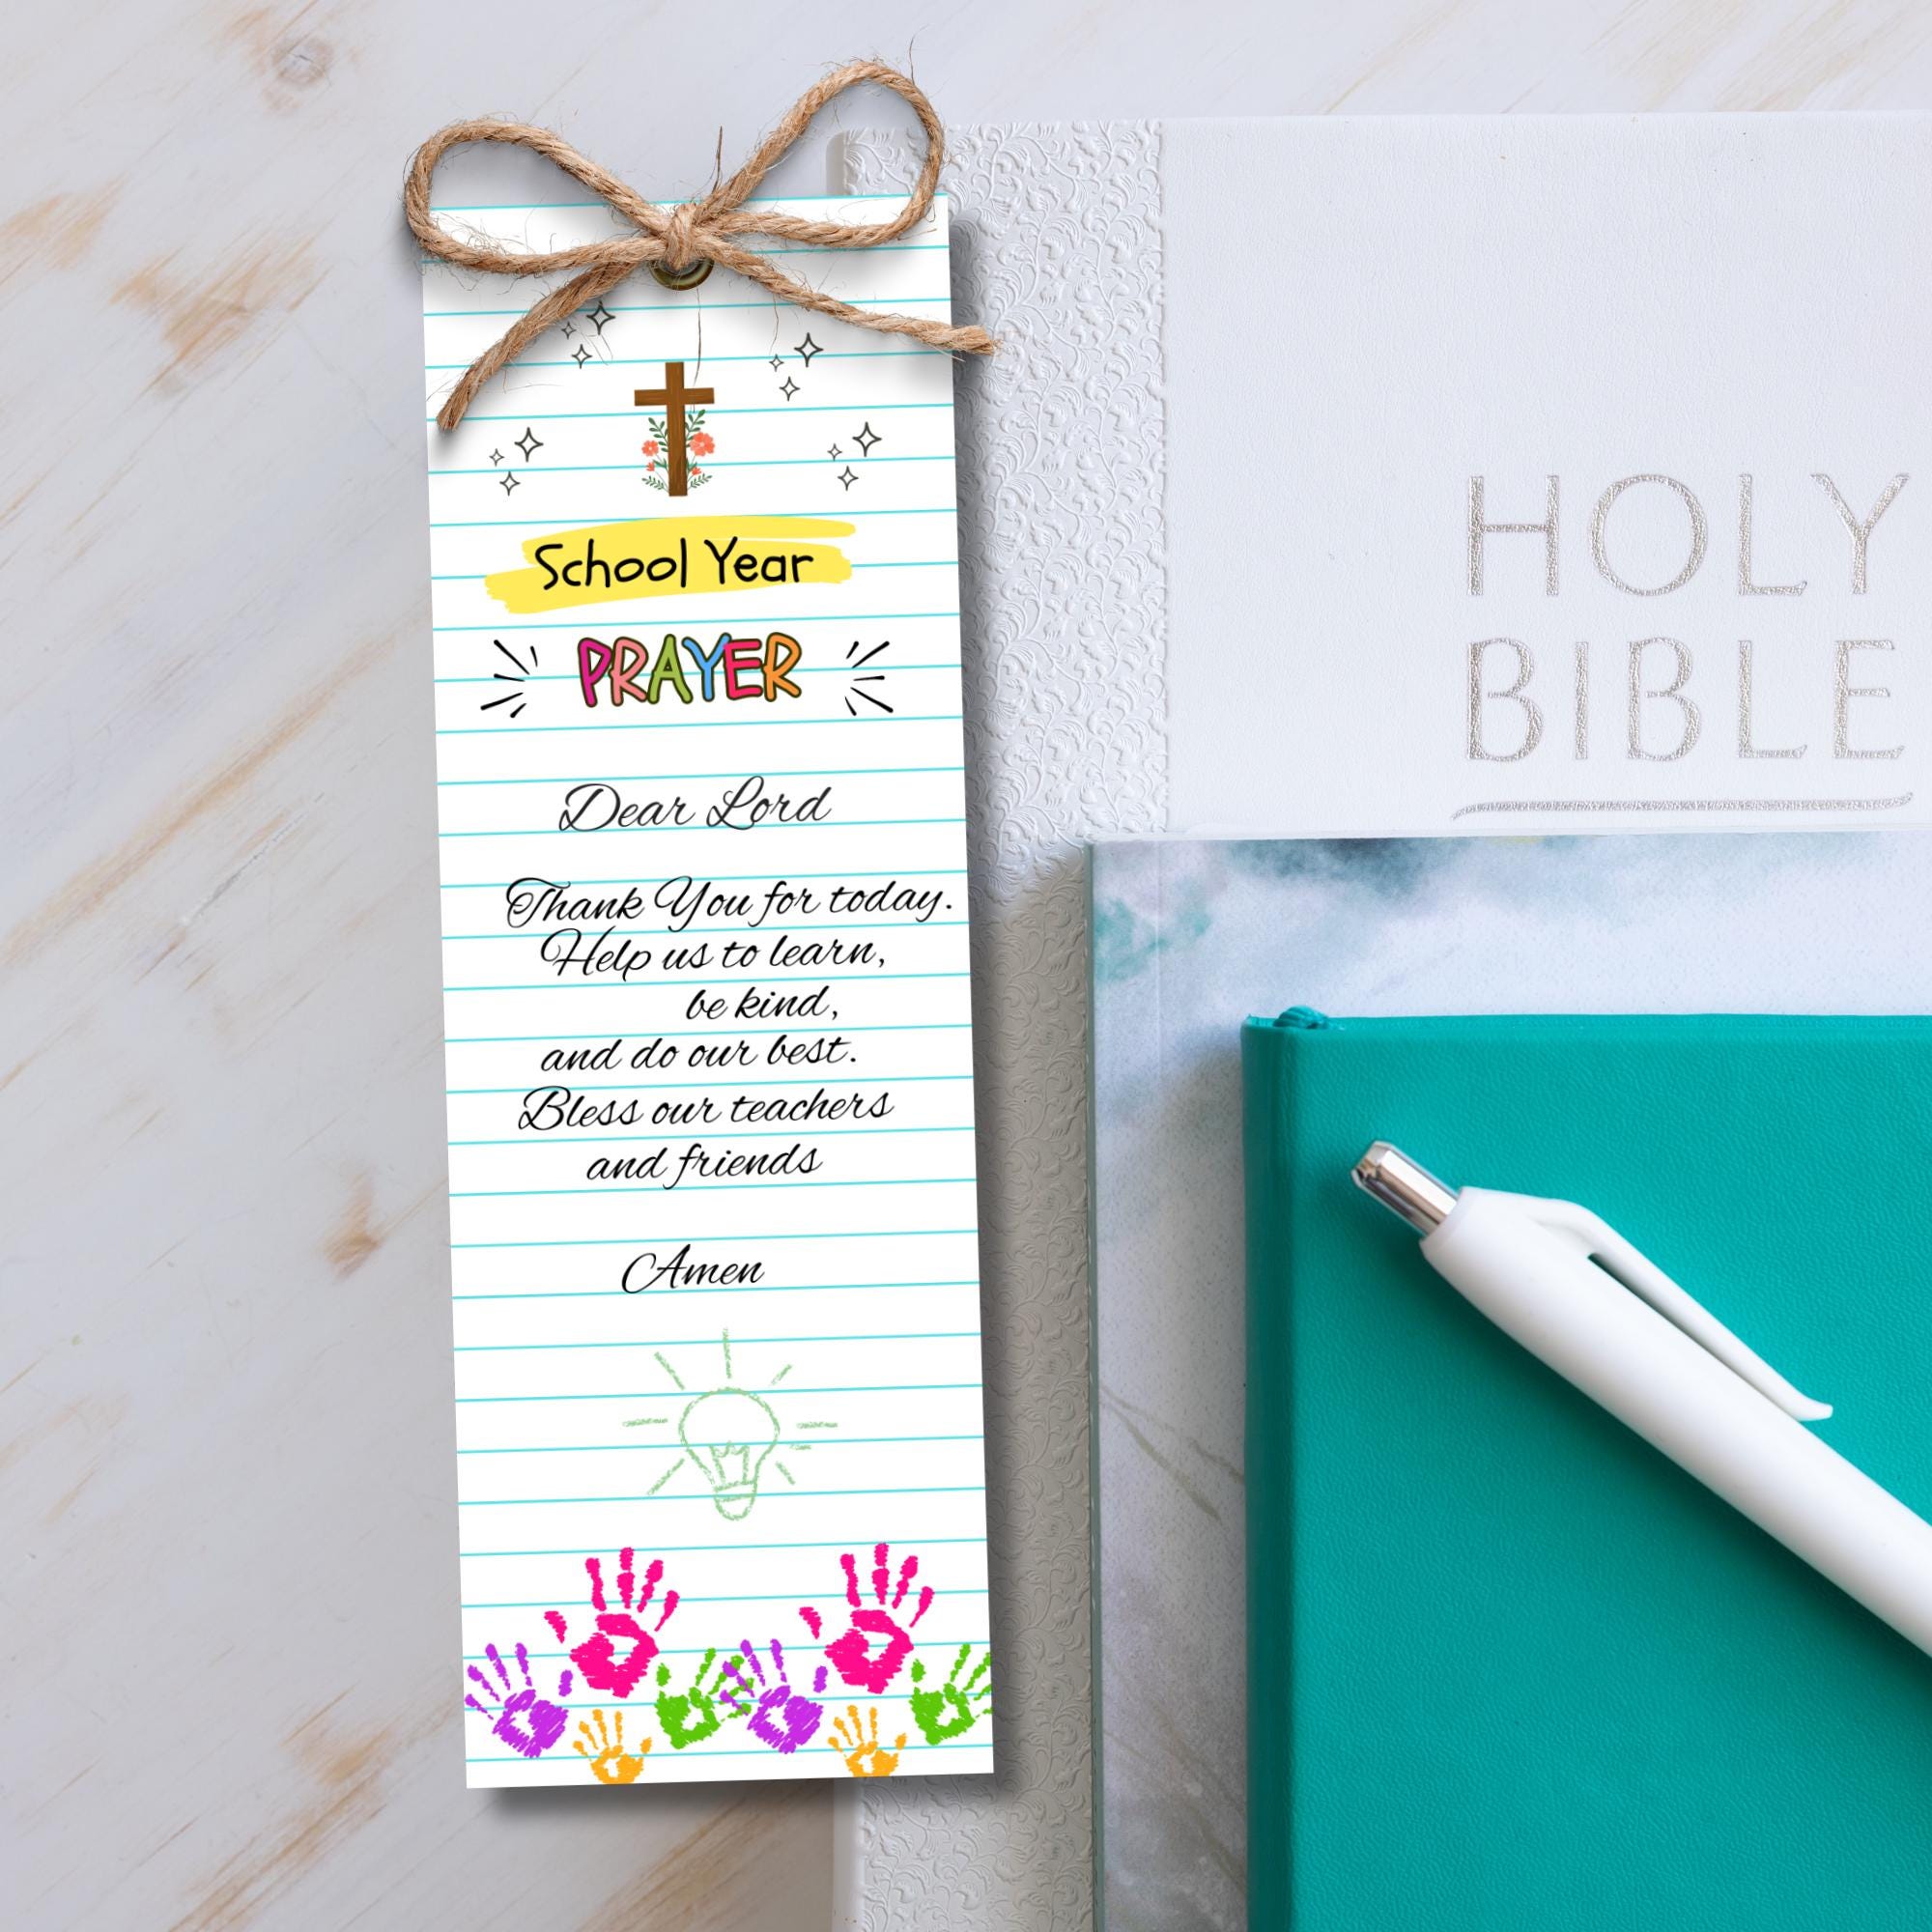 School Year
PRAYER
Dear Lord
Thank You for today.
Help us to learn,
be kind,
and do our best.
Bless our teachers
and friends
Amen
HOLY
BIBLE